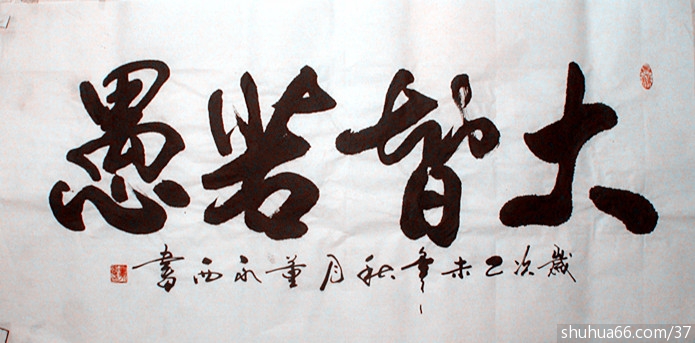 大智若愚
歲次乙未年秋月董永西書
shuhua66.com/37